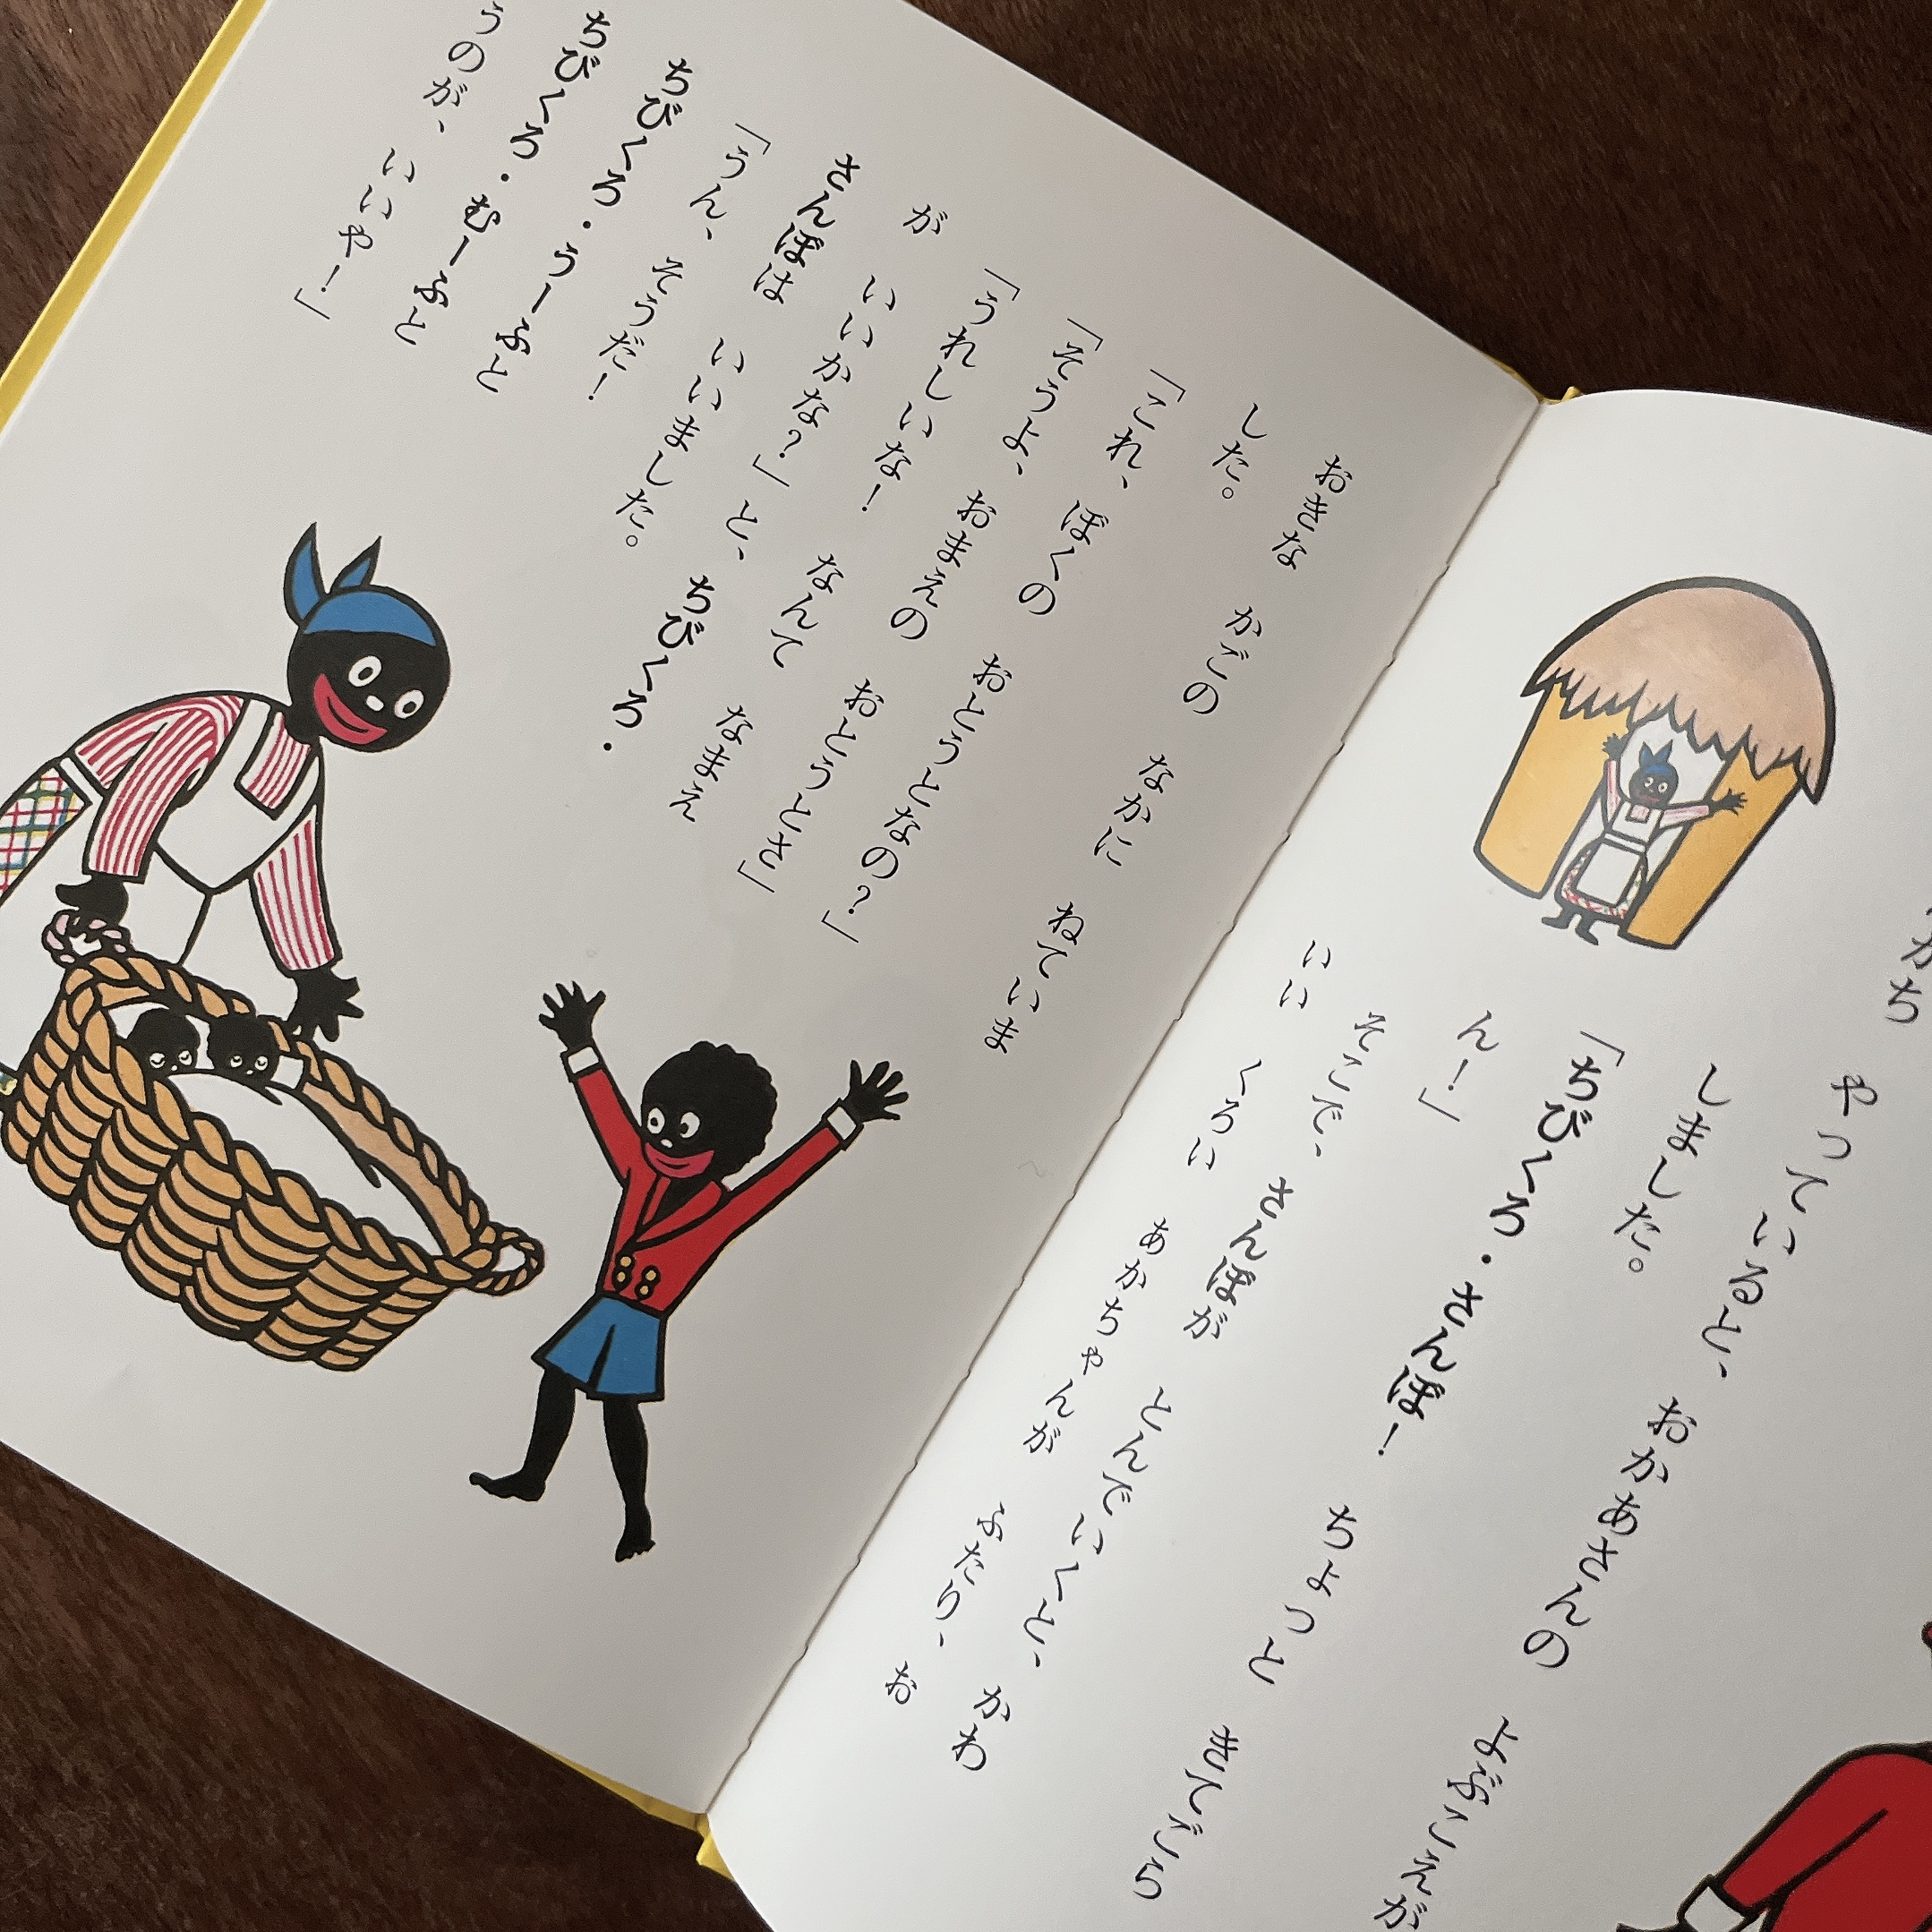 かち やっていると、 おかあさんの よぶこえが
しました。
「ちびくろ・さんぼ! ちょっと きてごら
ん!」
そこで、 さんぼが とんでいくと、 かわ
いい くろい あかちゃんが ふたり、 お
おきな かごの なかに ねていま
した。
「これ、 ぼくの おとうとなの?」
「そうよ、 おまえの おとうとさ」
「うれしいな! なんて なまえ
が いいかな?」と、 ちびくろ・
さんぼは いいました。
「うん、 そうだ!
ちびくろ・うーふと
ちびくろ・むーふと
うのが、 いいや!」